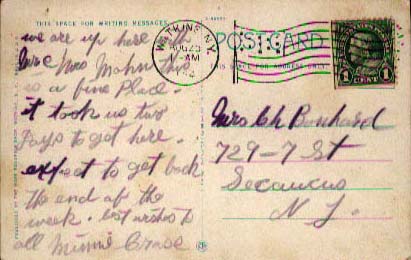 THIS SPACE FOR WRITING MESSAGES
we are up here with
Mr & Mrs Mohn this
is a fine Place.
it took us two
Days to get here.
expect to get back
the end of the
week. best wishes to
all Minnie
POSTCARD
THIS SPACE FOR ADDRESS ONLY
WATKINS, N.Y.
AUG 23
AM
1 CENT 1
Mrs Ch
729-7 St
Secaucus
N J.